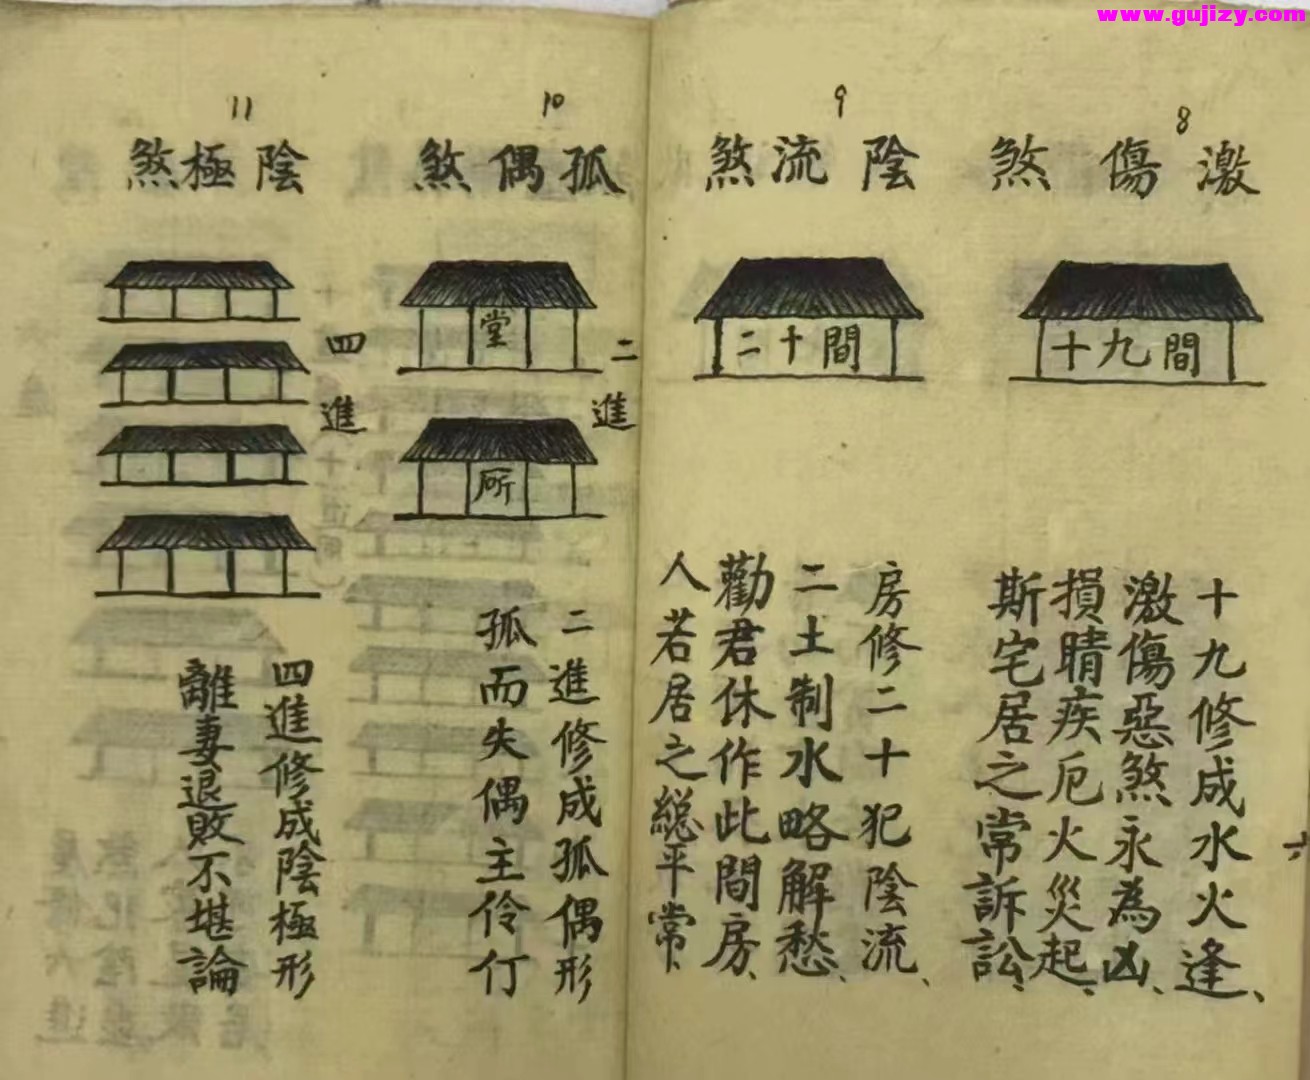 www.gujizy.com
8
激傷煞
十九間
十九修成水火逢、
激傷惡煞永為凶、
損睛疾厄火災起、
斯宅居之常訴訟、
六
9
陰流煞
二十間
房修二十犯陰流、
二土制水略解愁、
勸君休作此間房、
人若居之縂平常、
10
孤偶煞
二進
堂
所
二進修成孤偶形
孤而失偶主伶仃
11
陰極煞
四進
四進修成陰極形
離妻退敗不堪論